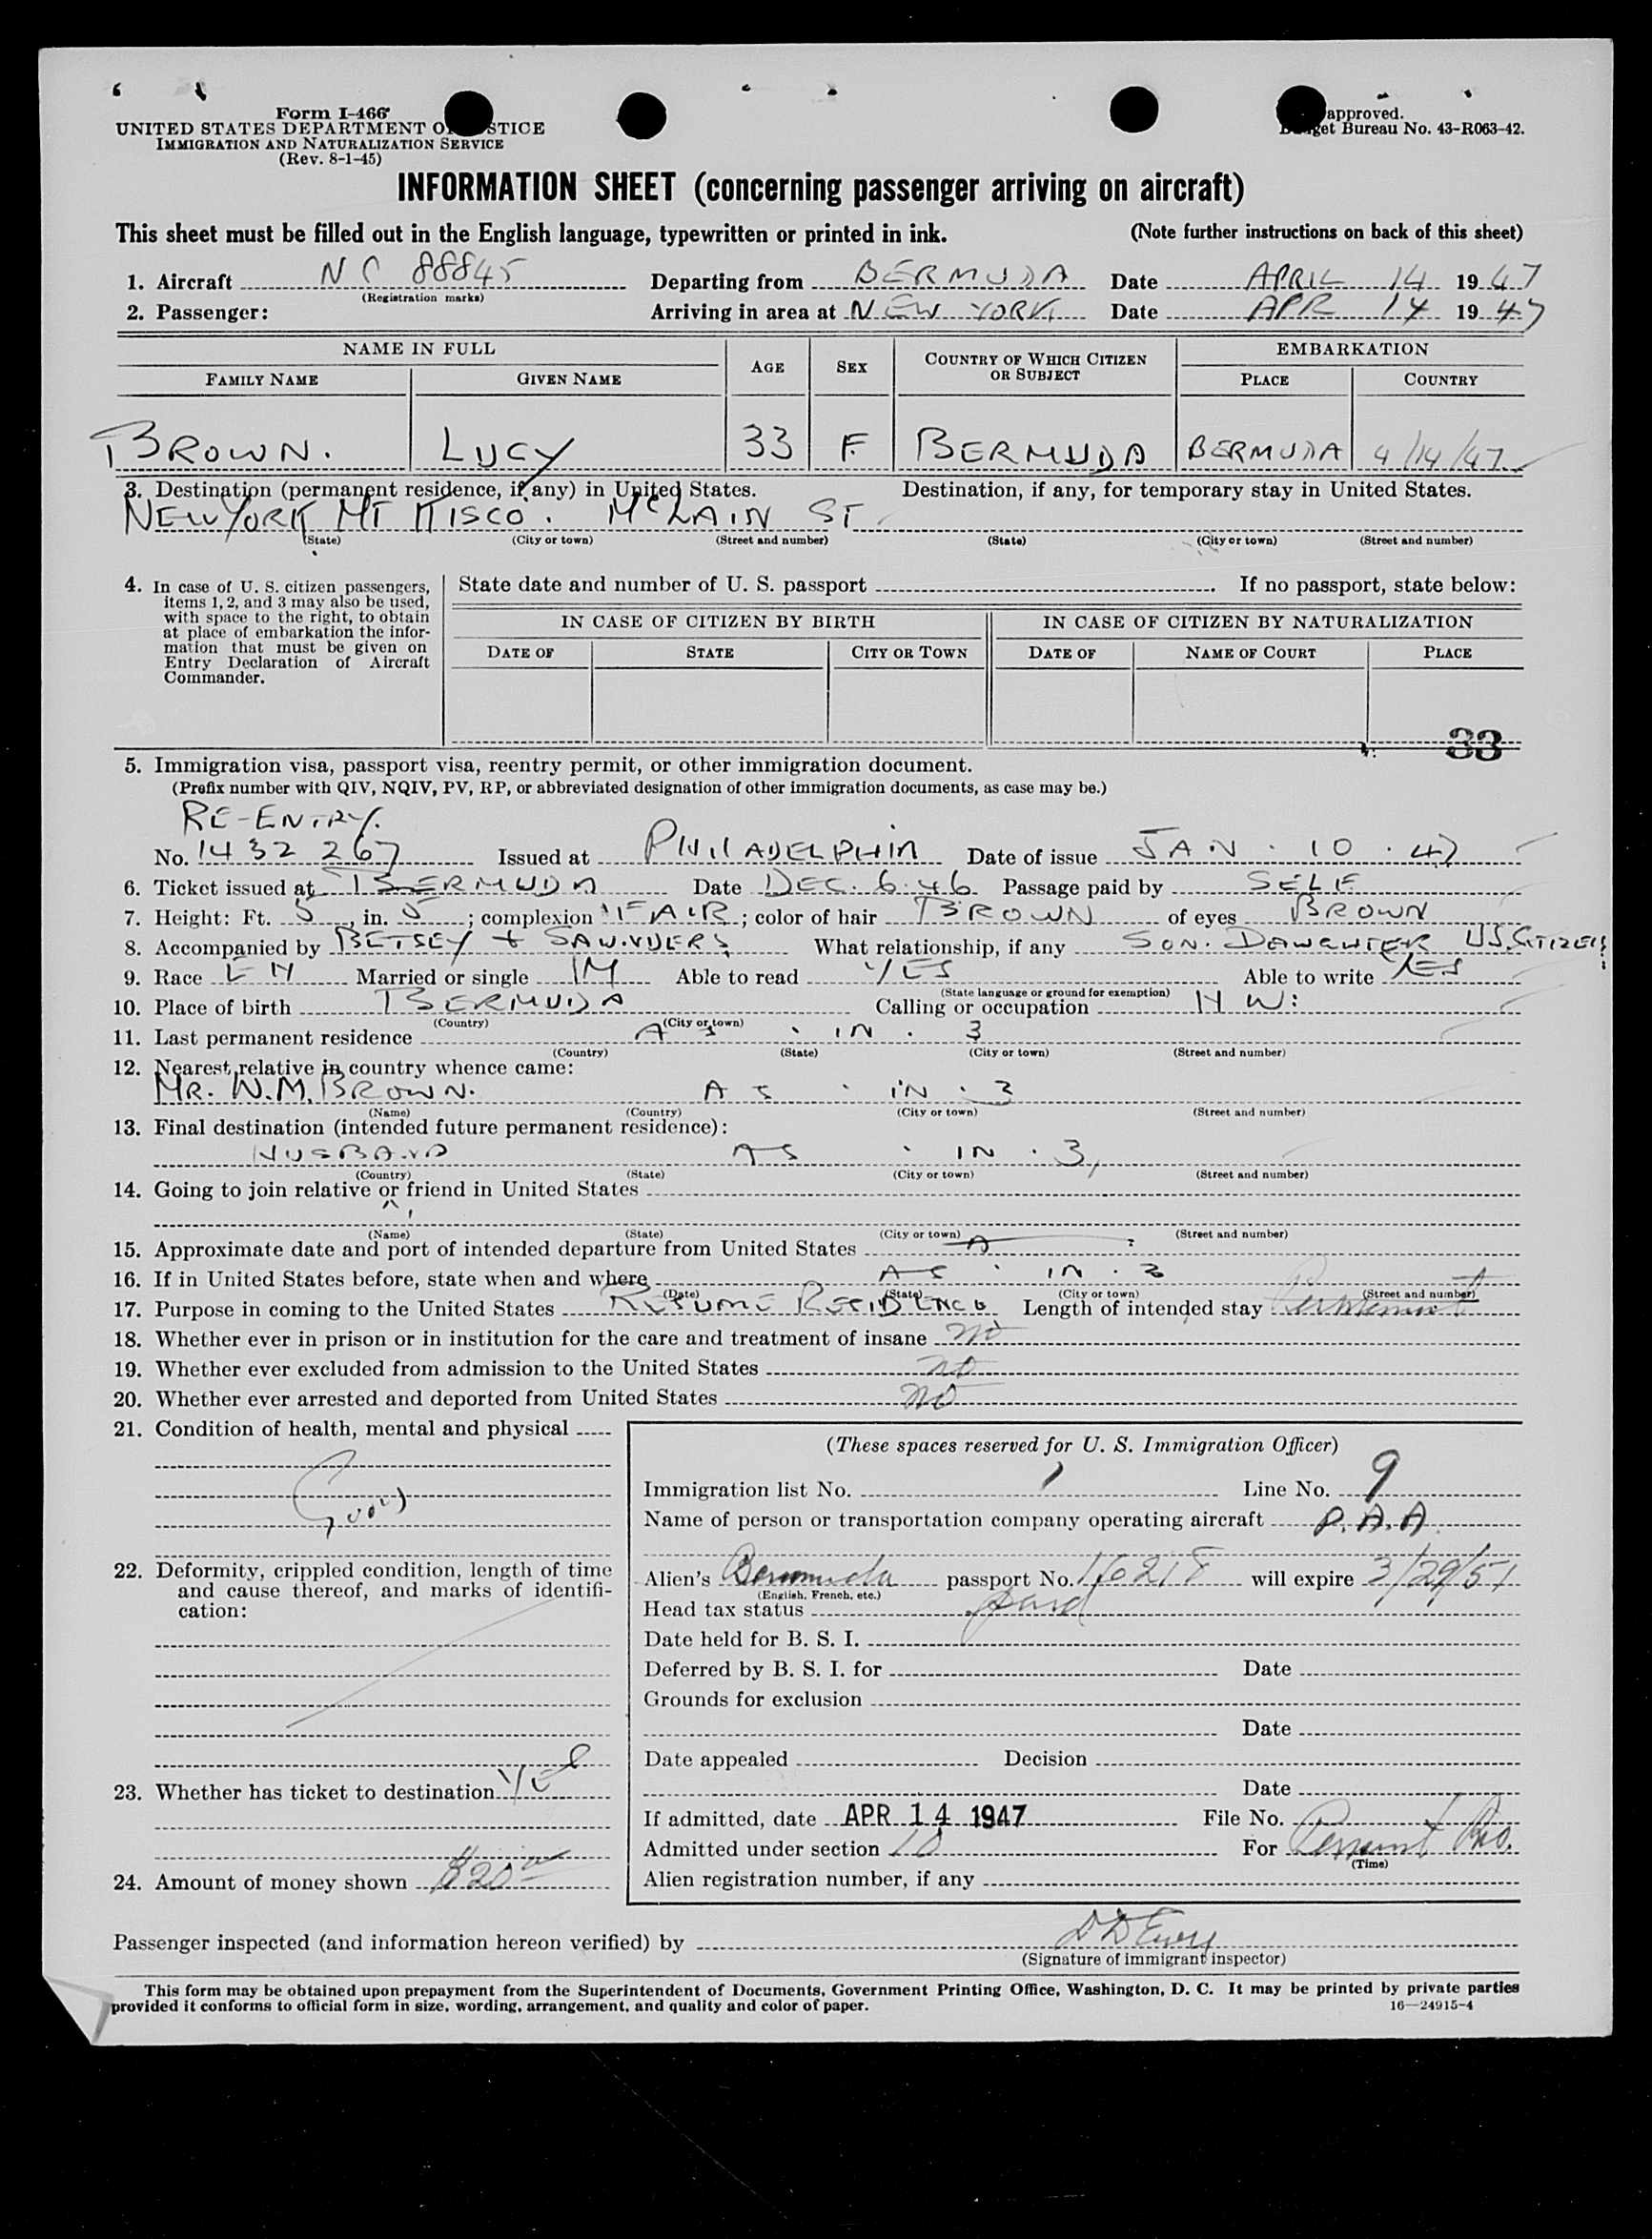 Form I-466
UNITED STATES DEPARTMENT OF JUSTICE
IMMIGRATION AND NATURALIZATION SERVICE
(Rev. 8-1-45)
approved.
Budget Bureau No. 43-R063-42.
INFORMATION SHEET (concerning passenger arriving on aircraft)
This sheet must be filled out in the English language, typewritten or printed in ink. (Note further instructions on back of this sheet)
1. Aircraft NC 88845 Departing from BERMUDA Date APRIL 14 1947
(Registration marks)
2. Passenger: Arriving in area at NEW YORK Date APR 14 1947
NAME IN FULL AGE SEX COUNTRY OF WHICH CITIZEN OR SUBJECT EMBARKATION
FAMILY NAME GIVEN NAME PLACE COUNTRY
BROWN. LUCY 33 F. BERMUDA BERMUDA 4/14/47
3. Destination (permanent residence, if any) in United States. Destination, if any, for temporary stay in United States.
NEW YORK MT KISCO. McLAIN ST
(State) (City or town) (Street and number) (State) (City or town) (Street and number)
4. In case of U. S. citizen passengers, items 1, 2, and 3 may also be used, with space to the right, to obtain at place of embarkation the information that must be given on Entry Declaration of Aircraft Commander.
State date and number of U. S. passport . If no passport, state below:
IN CASE OF CITIZEN BY BIRTH IN CASE OF CITIZEN BY NATURALIZATION
DATE OF STATE CITY OR TOWN DATE OF NAME OF COURT PLACE
33
5. Immigration visa, passport visa, reentry permit, or other immigration document.
(Prefix number with QIV, NQIV, PV, RP, or abbreviated designation of other immigration documents, as case may be.)
RE-ENTRY.
No. 1432 267 Issued at PHILADELPHIA Date of issue JAN. 10. 47
6. Ticket issued at BERMUDA Date DEC. 6. 46 Passage paid by SELF
7. Height: Ft. 5, in. 5; complexion FAIR; color of hair BROWN of eyes BROWN
8. Accompanied by BETSEY + SAUNDERS, What relationship, if any SON. DAWGHTER US. CITIZENS
9. Race EN Married or single M Able to read YES Able to write YES
(State language or ground for exemption)
10. Place of birth BERMUDA Calling or occupation HW:
(Country) (City or town)
11. Last permanent residence AS . IN . 3
(Country) (State) (City or town) (Street and number)
12. Nearest relative in country whence came:
MR. W.M. BROWN. AS . IN . 3
(Name) (Country) (City or town) (Street and number)
13. Final destination (intended future permanent residence):
HUSBAND AS . IN . 3,
(Country) (State) (City or town) (Street and number)
14. Going to join relative or friend in United States
(Name) (State) (City or town) (Street and number)
15. Approximate date and port of intended departure from United States
16. If in United States before, state when and where AS . IN . 3
(Date) (State) (City or town) (Street and number)
17. Purpose in coming to the United States RESUME RESIDENCE Length of intended stay Permanent
18. Whether ever in prison or in institution for the care and treatment of insane no
19. Whether ever excluded from admission to the United States no
20. Whether ever arrested and deported from United States no
21. Condition of health, mental and physical
Good
22. Deformity, crippled condition, length of time and cause thereof, and marks of identification:
23. Whether has ticket to destination YES
24. Amount of money shown $20 00
(These spaces reserved for U. S. Immigration Officer)
Immigration list No. 1 Line No. 9
Name of person or transportation company operating aircraft P.A.A.
Alien's Bermuda passport No. 16218 will expire 3/29/51
(English, French, etc.)
Head tax status paid
Date held for B. S. I.
Deferred by B. S. I. for Date
Grounds for exclusion
Date
Date appealed Decision
Date
If admitted, date APR 14 1947 File No.
Admitted under section 10 For Permanent Res.
(Time)
Alien registration number, if any
Passenger inspected (and information hereon verified) by
(Signature of immigrant inspector)
This form may be obtained upon prepayment from the Superintendent of Documents, Government Printing Office, Washington, D. C. It may be printed by private parties
provided it conforms to official form in size, wording, arrangement, and quality and color of paper. 16—24915-4